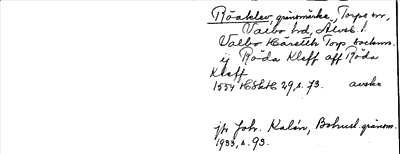 Röaklev, gränsmärke, Torps sn,
Valbo hrd, Älvsb. l.
Valbo Häredt Torp sockens
ij Röda Kleff aff Röda
Kleff
1554 HSkH 29, s. 73. avskr.
jfr Joh. Kalén, Bohusl. gränsm.
1933, s. 93.